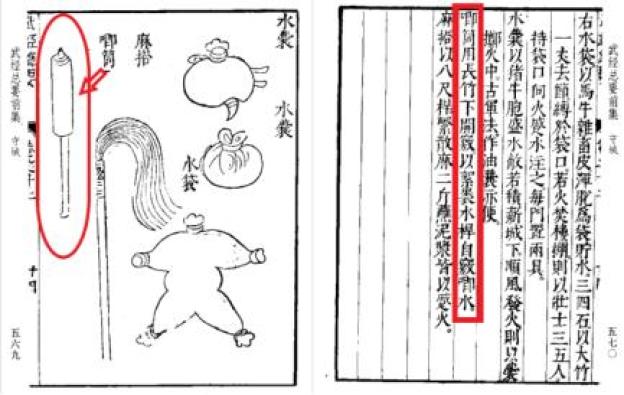 水囊
水囊
水袋
麻搭
唧筒
武经总要前集 守城
五六九
武经总要前集 守城
五七〇
右水袋以馬牛雜畜皮渾脫爲袋貯水三四石以大竹
一丈去節縛於袋口若火焚樓棚則以壯士三五人
持袋口向火蹙水注之每門置兩具。
水囊以猪牛胞盛水敵若積薪城下順風發火則以囊
擲火中古軍法作油囊亦便
唧筒用長竹下開竅以絮裹水桿自竅唧水。
麻搭以八尺桿繫散麻二斤蘸泥漿皆以蹙火。